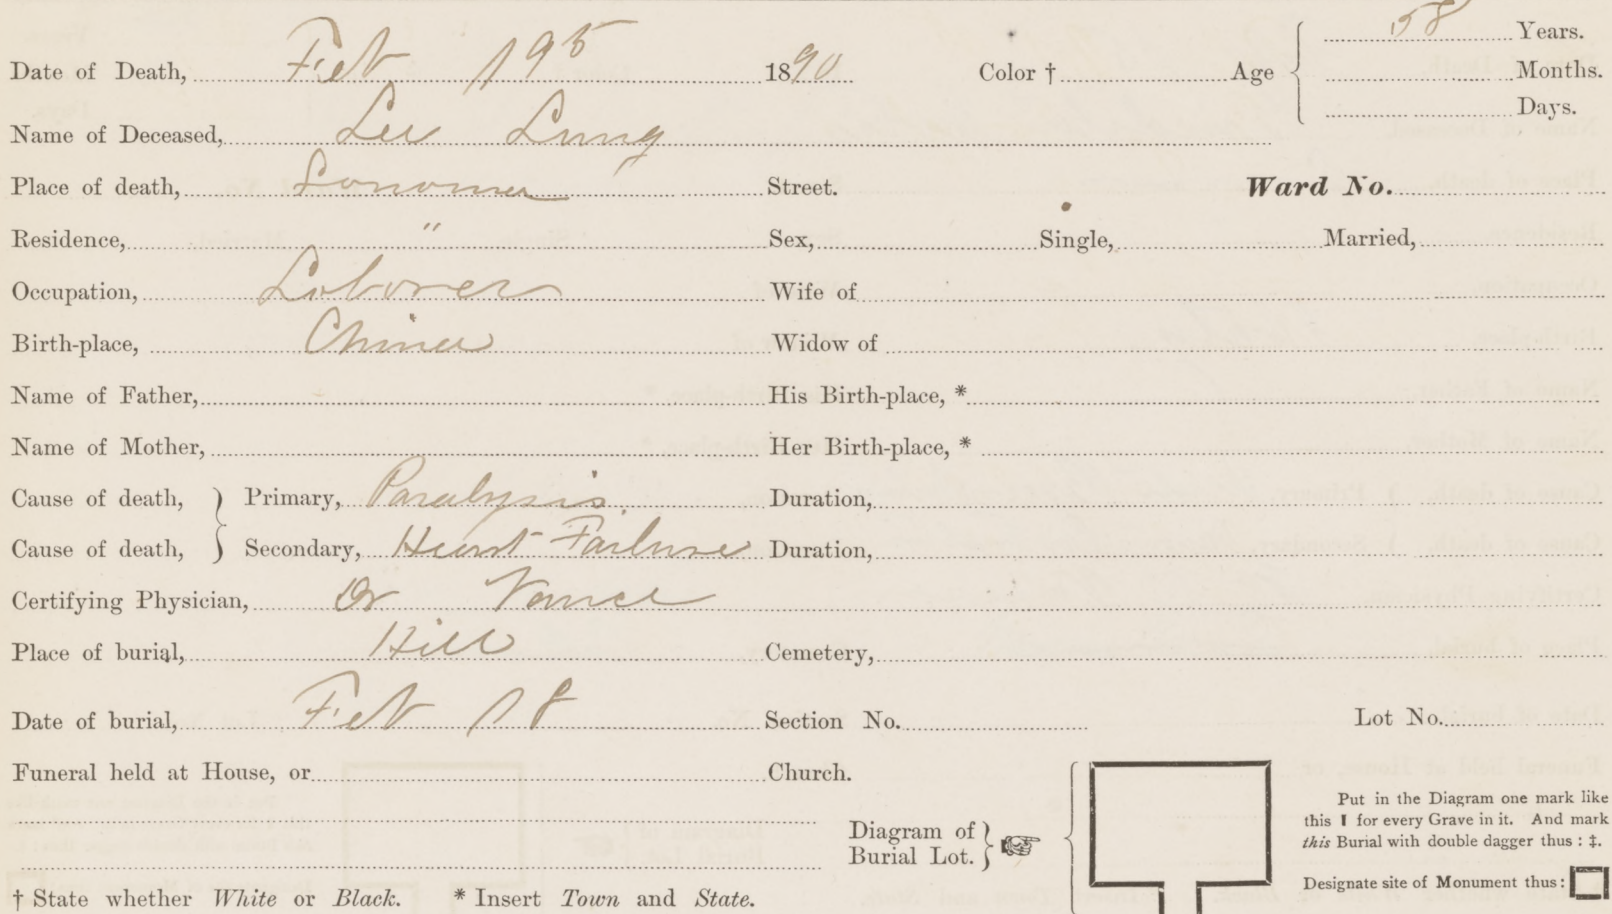 Date of Death, Feb 195 1890 Color † Age 58 Years.
Months.
Days.
Name of Deceased, Lee Lung
Place of death, Sonoma Street. Ward No.
Residence, " Sex, Single, Married,
Occupation, Laborer Wife of
Birth-place, China Widow of
Name of Father, His Birth-place, *
Name of Mother, Her Birth-place, *
Cause of death, Primary, Paralysis Duration,
Cause of death, Secondary, Heart Failure Duration,
Certifying Physician, Dr Vance
Place of burial, Hill Cemetery,
Date of burial, Feb 18 Section No. Lot No.
Funeral held at House, or Church.
Diagram of
Burial Lot.
Put in the Diagram one mark like
this I for every Grave in it. And mark
this Burial with double dagger thus : ‡.
Designate site of Monument thus :
† State whether White or Black. * Insert Town and State.